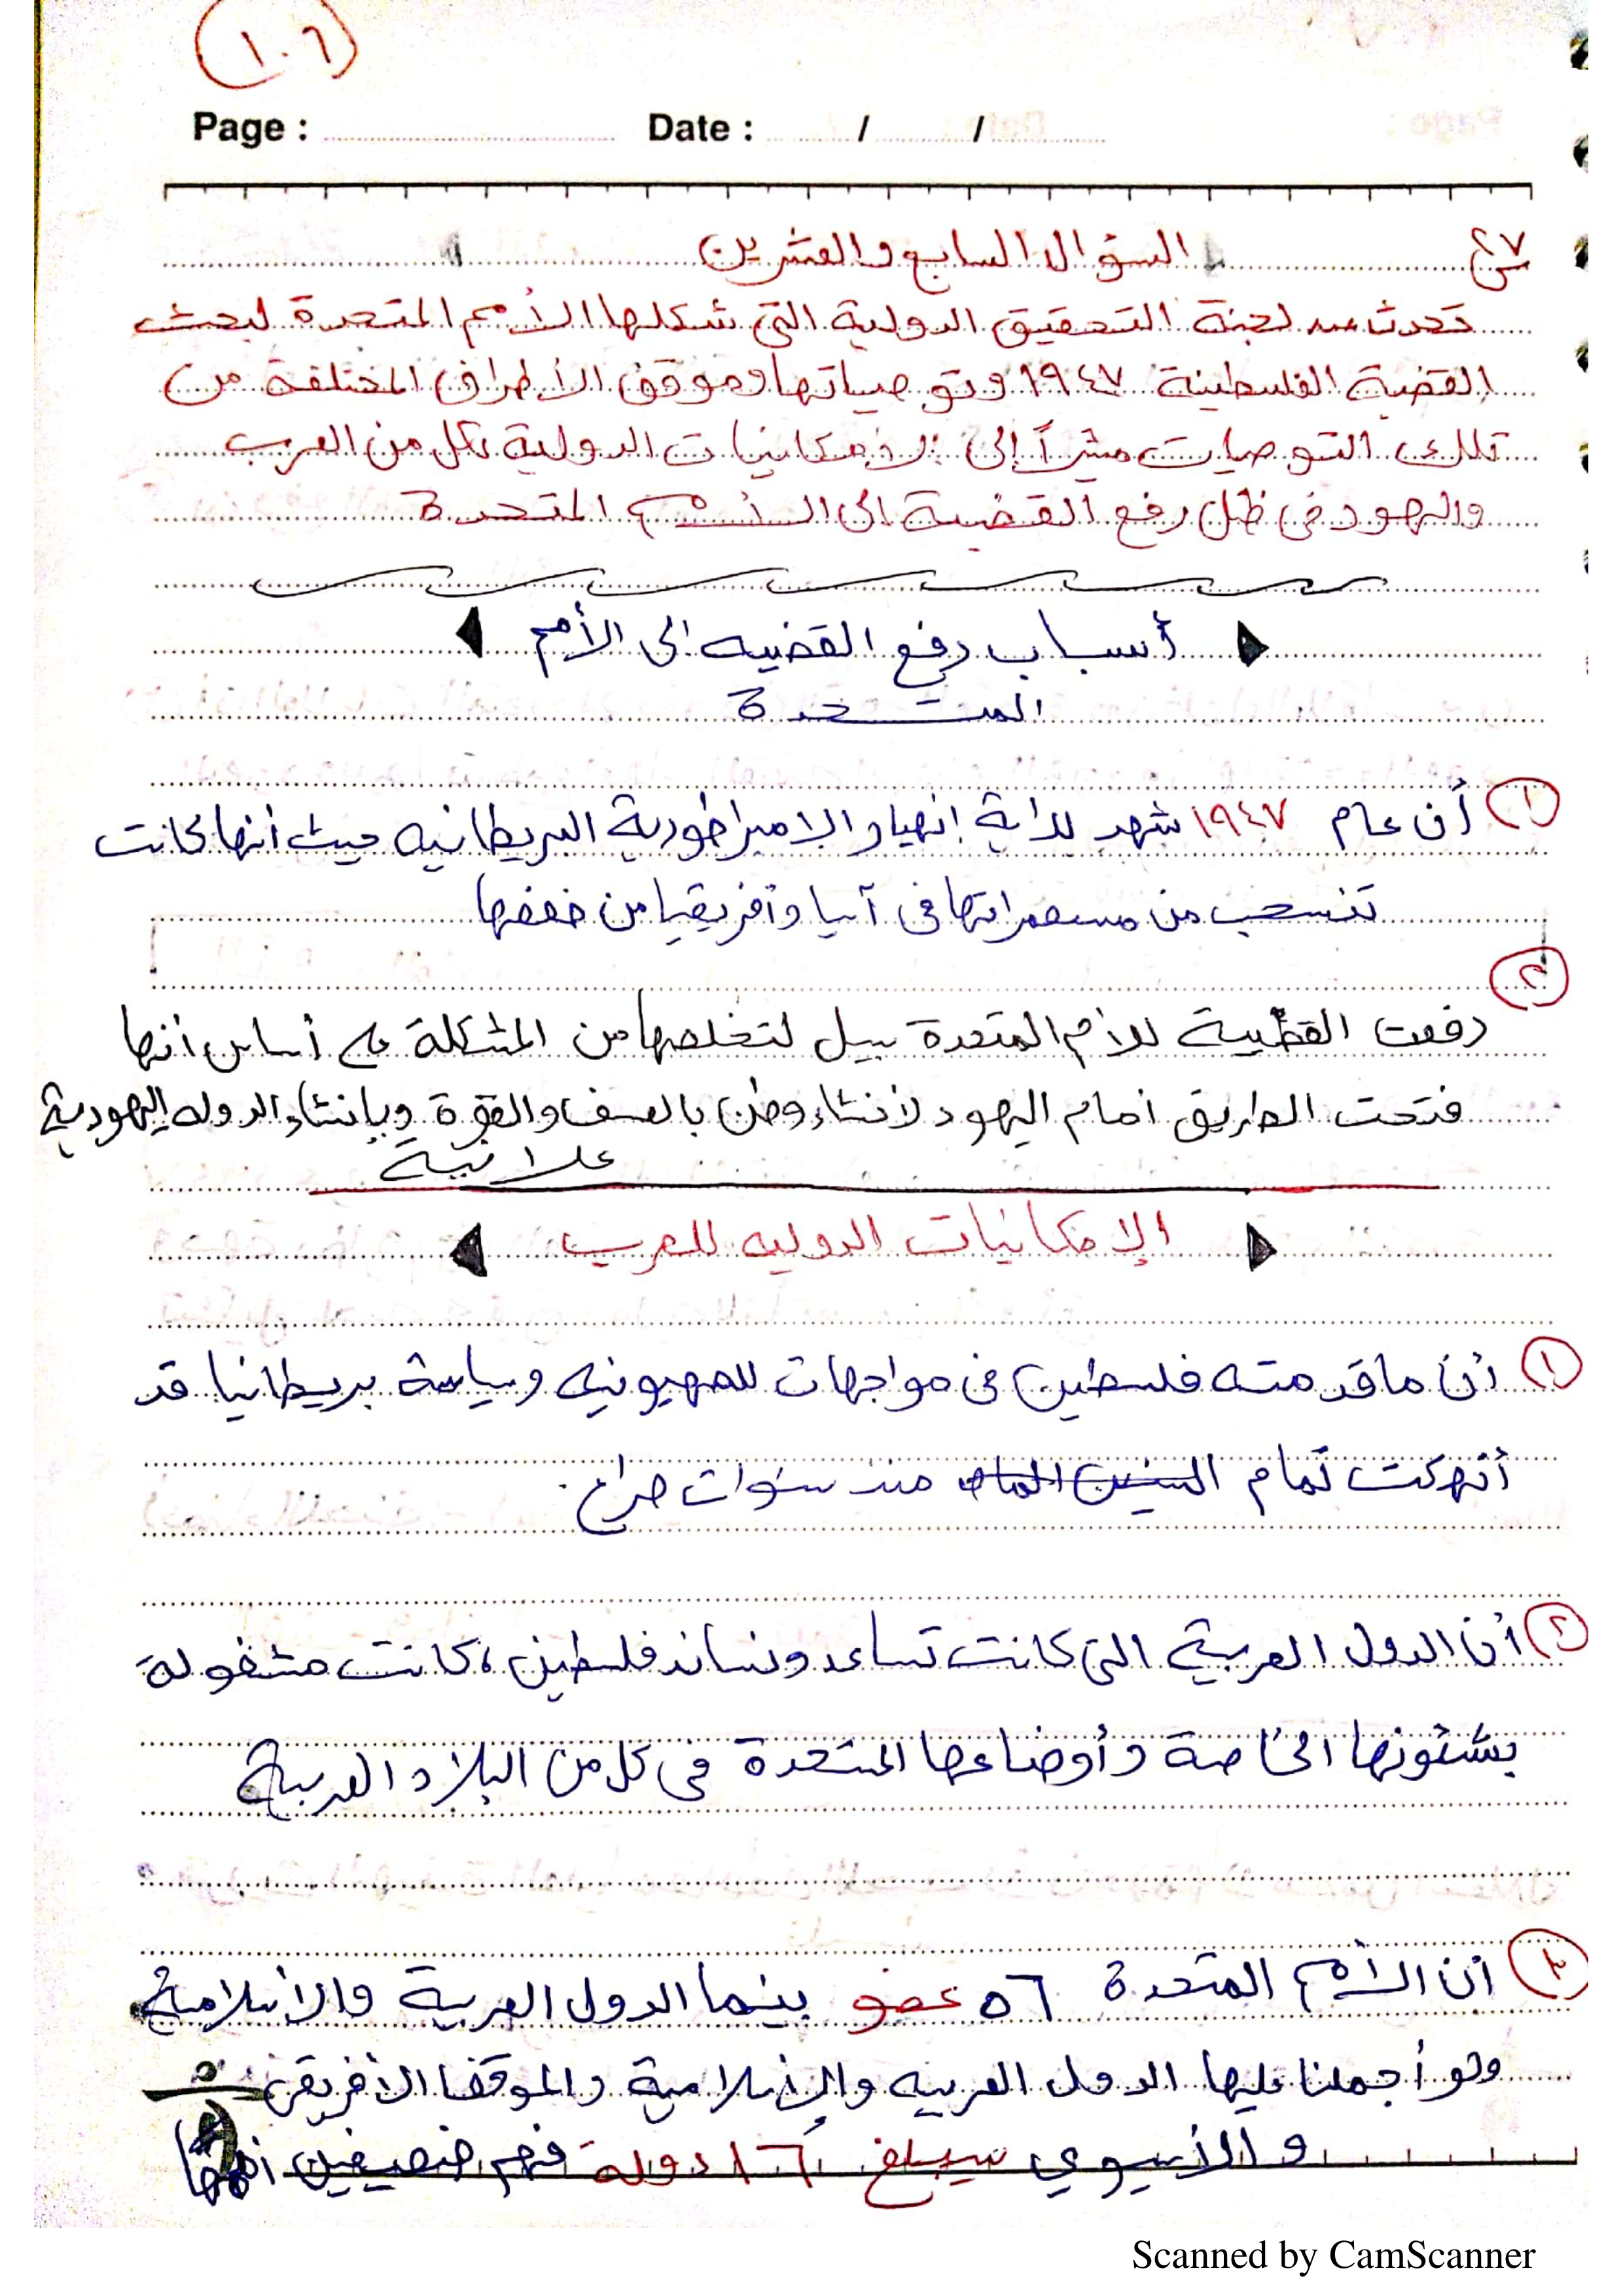 ١٠٦
Page : Date : / /
س٢٧ السؤال السابع والعشرين
تحدث عن لجنة التحقيق الدولية التى شكلها الأمم المتحدة لبحث
القضية الفلسطينة ١٩٤٧ وتوصياتها وموقف الأطراف المختلفة من
تلك التوصيات مشيراً إلى الإمكانيات الدولية لكل من العرب
واليهود فى ظل رفع القضية الى الأمم المتحدة
أسباب رفع القضيه الى الأمم
المتحدة
١ أن عام ١٩٤٧ شهد بداية إنهيار الإمبراطورية البريطانيه حيث أنها كانت
تنسحب من مستعمراتها فى آسيا وأفريقيا من ضعفها
٢
رفعت القضية للأمم المتحدة سبيل لتخلصها من المشكلة على أساس أنها
فتحت الطريق أمام اليهود لأنشاء وطن بالعسف والقوة وبإنشاء الدوله اليهودية
علانية
الإمكانيات الدوليه للعرب
١ أن ماقدمته فلسطين فى مواجهات للصهيونيه وسياسة بريطانيا قد
أنهكت تمام منذ سنوات صراع .
٢ أن الدول العربية التى كانت تساعد وتساند فلسطين ، كانت مشغولة
بشئونها الخاصة وأوضاعها المتعددة فى كل من البلاد العربية
٣ أن الأمم المتحدة ٥٦ عضو بينما الدول العربية والأسلامية
ولو أجملنا عليها الدول العربيه والإسلامية والموقف الأفريقى
و الأسيوي سيبلغ ١٦ دولة فهم ضعيفين
Scanned by CamScanner